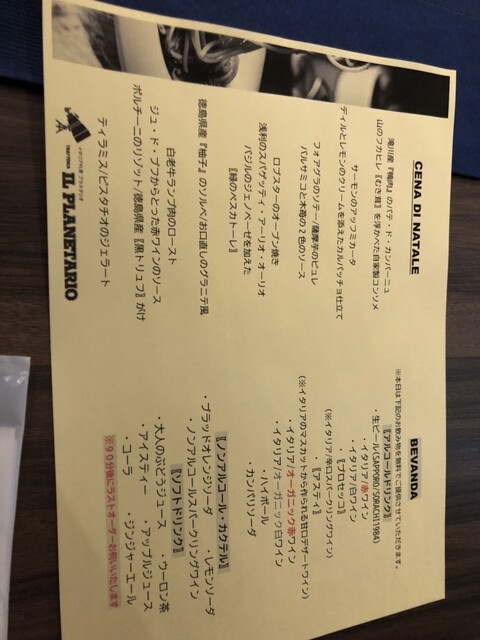 CENA DI NATALE
滝川産『鴨肉』のパテ・ド・カンパーニュ
山のフカヒレ『むき茸』を浮かべた自家製コンソメ
サーモンのアッフミカータ
ディルとレモンのクリームを添えたカルパッチョ仕立て
フォアグラのソテー/薩摩芋のピュレ
バルサミコと木苺の2色のソース
ロブスターのオーブン焼き
浅利のスパゲッティ・アーリオ・オーリオ
バジルのジェノベーゼを加えた
『緑のペスカトーレ』
徳島県産『柚子』のソルベ/お口直しのグラニテ風
白老牛ランプ肉のロースト
ジュ・ド・ブフからとった赤ワインのソース
ポルチーニのリゾット/徳島県産『黒トリュフ』がけ
ティラミス/ピスタチオのジェラート
イタリア料理 プラネタリオ
TRATTORIA
IL PLANETARIO
BEVANDA
※本日は下記のお飲み物を無料でご提供させていただきます。
『アルコールドリンク』
・生ビール(SAPPORO/SORACHI1984)
・イタリア/赤ワイン
・イタリア/白ワイン
・『プロセッコ』
(※イタリア/辛口スパークリングワイン)
・『アスティ』
(※イタリアのマスカットから作られる甘口デザートワイン)
・イタリア/オーガニック赤ワイン
・イタリア/オーガニック白ワイン
・ハイボール
・カンパリソーダ
『ノンアルコール・カクテル』
・ブラッドオレンジソーダ ・レモンソーダ
・ノンアルコールスパークリングワイン
『ソフトドリンク』
・大人のぶどうジュース ・ウーロン茶
・アイスティー ・アップルジュース
・コーラ ・ジンジャーエール
※90分後にラストオーダーお伺いいたします